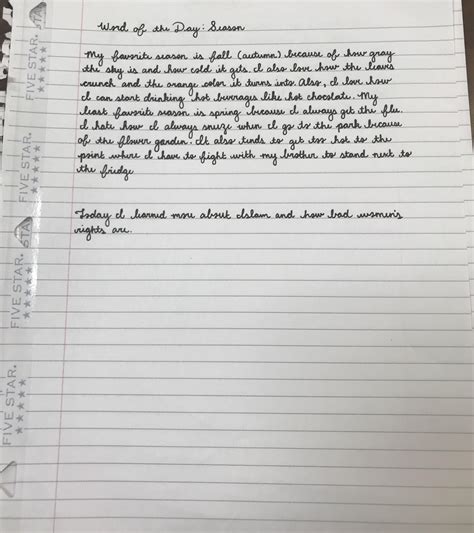 Word of the Day: Season
My favorite season is fall (autumn) because of how gray
the sky is and how cold it gets. I also love how the leaves
crunch and the orange color it turns into. Also, I love how
I can start drinking hot beverages like hot chocolate. My
least favorite season is spring because I always get the flu.
I hate how I always sneize when I go to the park because
of the flower garden. It also tends to get too hot to the
point where I have to fight with my brother to stand next to
the fridge
Today I learned more about Islam and how bad women's
rights are.
FIVE STAR.
FIVE STAR.
FIVE STAR.
FIVE STAR.